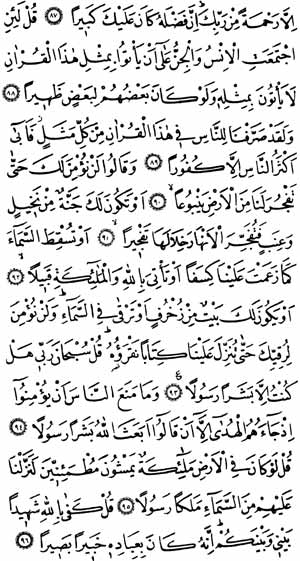 اِلَّا رَحْمَةً مِنْ رَبِّكَ اِنَّ فَضْلَهُ كَانَ عَلَيْكَ كَبٖيرًا ﴿٨٧﴾ قُلْ لَئِنِ
اجْتَمَعَتِ الْاِنْسُ وَالْجِنُّ عَلٰٓى اَنْ يَاْتُوا بِمِثْلِ هٰذَا الْقُرْاٰنِ
لَا يَاْتُونَ بِمِثْلِهٖ وَلَوْ كَانَ بَعْضُهُمْ لِبَعْضٍ ظَهٖيرًا ﴿٨٨﴾
وَلَقَدْ صَرَّفْنَا لِلنَّاسِ فٖى هٰذَا الْقُرْاٰنِ مِنْ كُلِّ مَثَلٍ فَاَبٰٓى
اَكْثَرُ النَّاسِ اِلَّا كُفُورًا ﴿٨٩﴾ وَقَالُوا لَنْ نُؤْمِنَ لَكَ حَتّٰى
تَفْجُرَ لَنَا مِنَ الْاَرْضِ يَنْبُوعًا ﴿٩٠﴾ اَوْ تَكُونَ لَكَ جَنَّةٌ مِنْ نَخٖيلٍ
وَعِنَبٍ فَتُفَجِّرَ الْاَنْهَارَ خِلَالَهَا تَفْجٖيرًا ﴿٩١﴾ اَوْ تُسْقِطَ السَّمَٓاءَ
كَمَا زَعَمْتَ عَلَيْنَا كِسَفًا اَوْ تَاْتِىَ بِاللّٰهِ وَالْمَلٰٓئِكَةِ قَبٖيلًا ﴿٩٢﴾
اَوْ يَكُونَ لَكَ بَيْتٌ مِنْ زُخْرُفٍ اَوْ تَرْقٰى فِى السَّمَٓاءِ وَلَنْ نُؤْمِنَ
لِرُقِيِّكَ حَتّٰى تُنَزِّلَ عَلَيْنَا كِتَابًا نَقْرَؤُهُ قُلْ سُبْحَانَ رَبّٖى هَلْ
كُنْتُ اِلَّا بَشَرًا رَسُولًا ﴿٩٣﴾ وَمَا مَنَعَ النَّاسَ اَنْ يُؤْمِنُٓوا
اِذْ جَٓاءَهُمُ الْهُدٰٓى اِلَّٓا اَنْ قَالُٓوا اَبَعَثَ اللّٰهُ بَشَرًا رَسُولًا ﴿٩٤﴾
قُلْ لَوْ كَانَ فِى الْاَرْضِ مَلٰٓئِكَةٌ يَمْشُونَ مُطْمَئِنّٖينَ لَنَزَّلْنَا
عَلَيْهِمْ مِنَ السَّمَٓاءِ مَلَكًا رَسُولًا ﴿٩٥﴾ قُلْ كَفٰى بِاللّٰهِ شَهٖيدًا
بَيْنٖى وَبَيْنَكُمْ اِنَّهُ كَانَ بِعِبَادِهٖ خَبٖيرًا بَصٖيرًا ﴿٩٦﴾